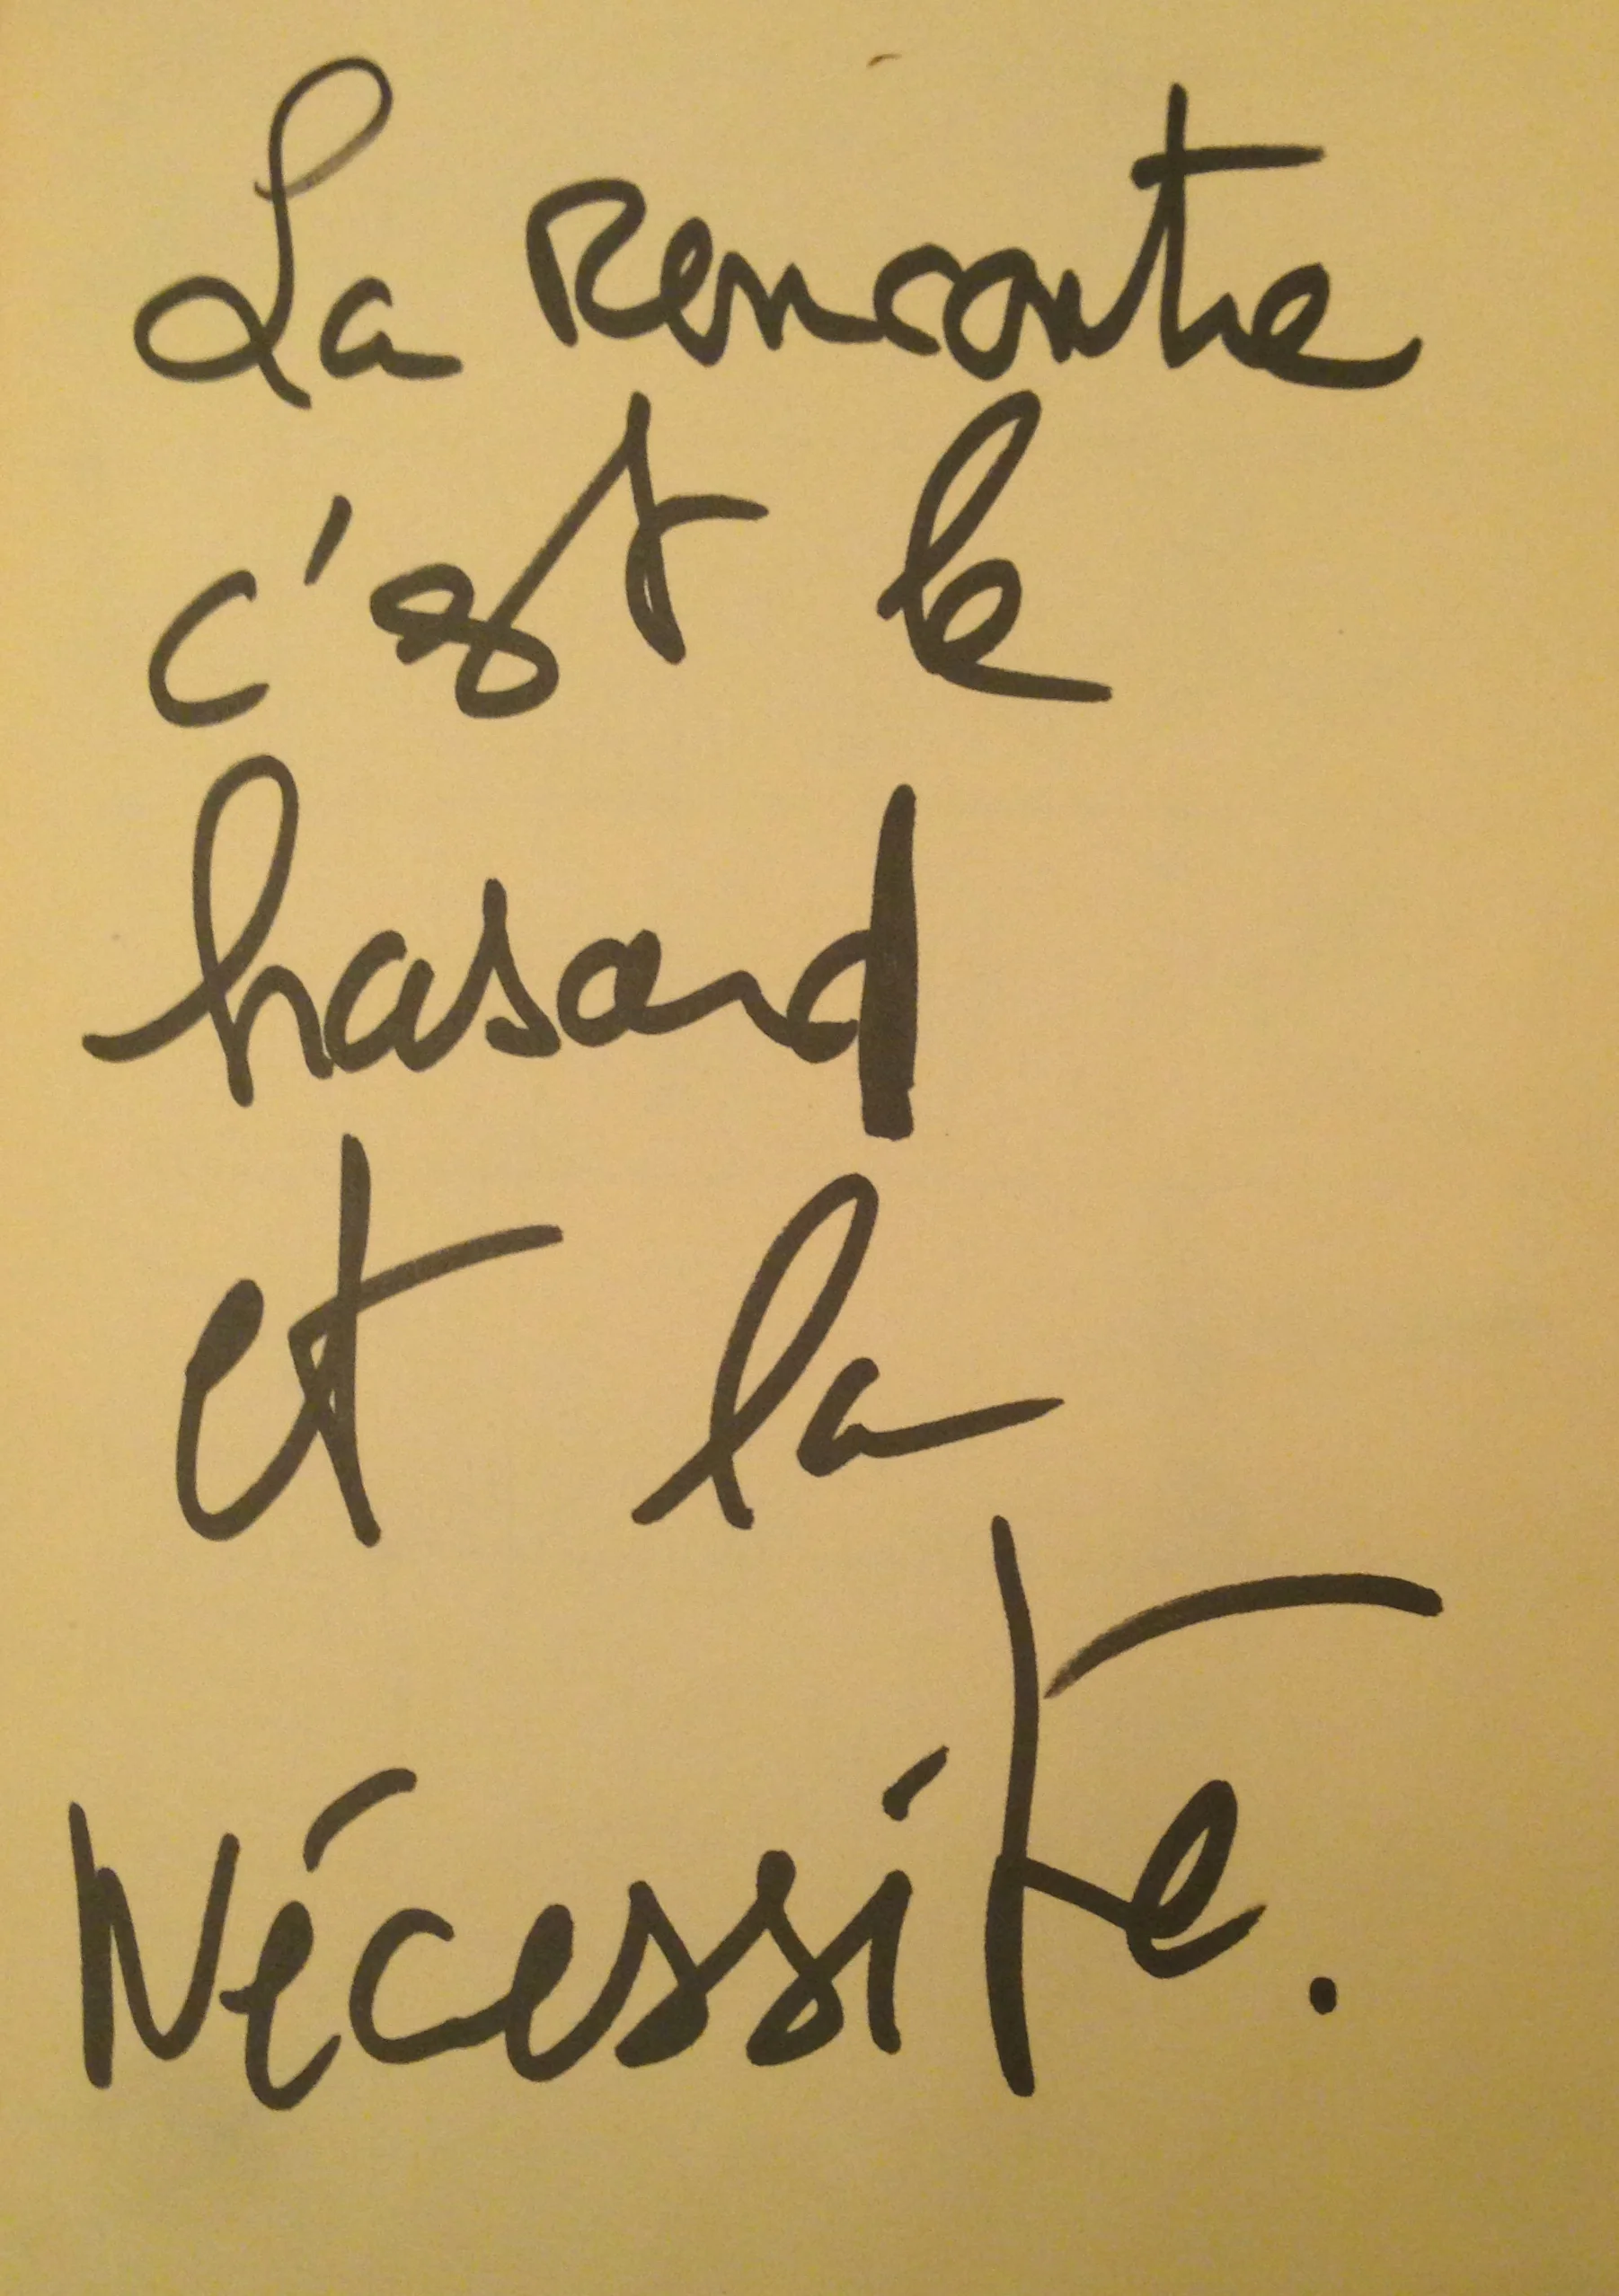 La Rencontre
c'est le
hasard
et la
Nécessité.